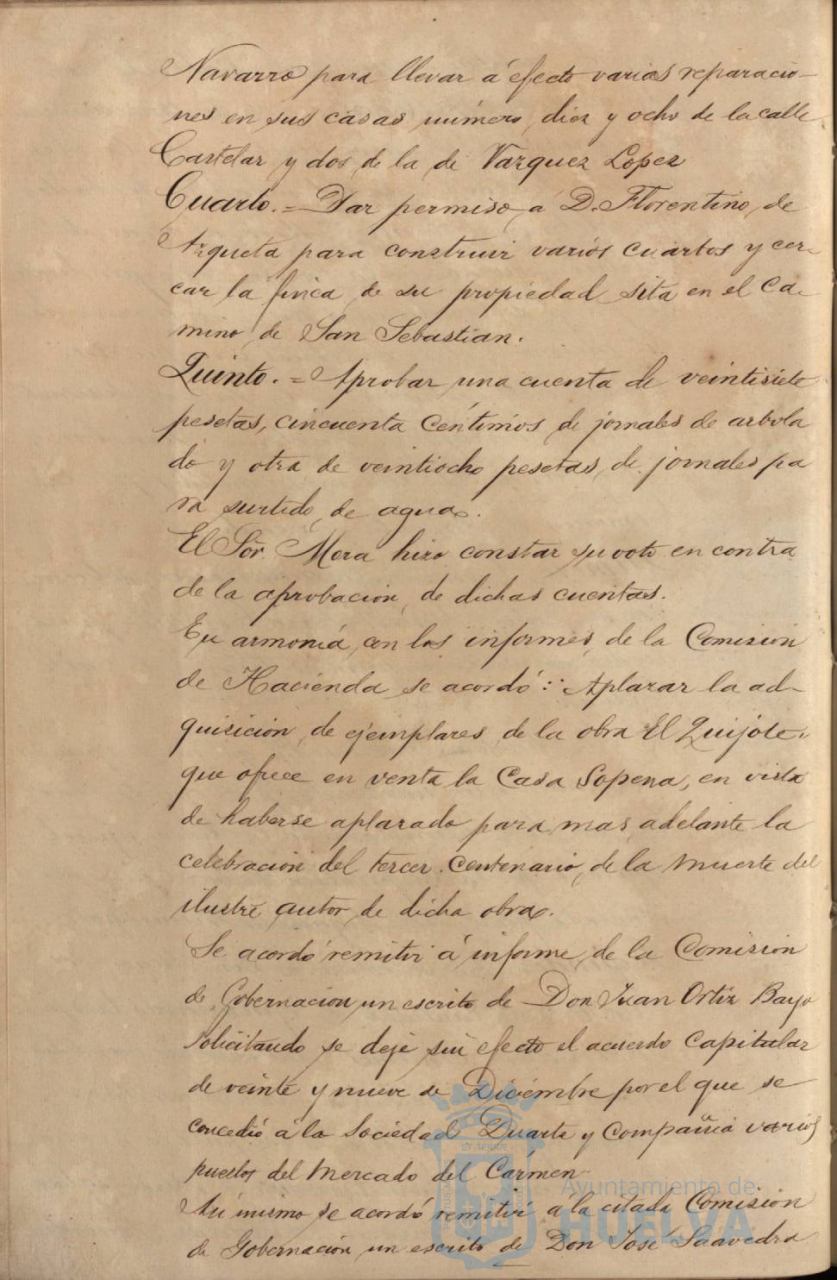 Navarro para llevar á efecto varias reparacio-
nes en sus casas número, diez y ocho de la calle
Castelar y dos de la de Vazquez Lopez
Cuarto.=Dar permiso á D. Florentino de
Azqueta para construir varios cuartos y cer-
car la finca de su propiedad sita en el Ca-
mino de San Sebastian.
Quinto.=Aprobar una cuenta de veintisiete
pesetas, cincuenta céntimos de jornales de arbola
do y otra de veintiocho pesetas de jornales pa
ra surtido de aguas.
El Sor. Mora hizo constar su voto en contra
de la aprobación de dichas cuentas.
En armonía con los informes de la Comisión
de Hacienda se acordó: Aplazar la ad-
quisición de ejemplares de la obra El Quijote,
que ofrece en venta la Casa Sopena, en vista
de haberse aplazado para mas adelante la
celebración del tercer Centenario de la muerte del
ilustre autor de dicha obra.
Se acordó remitir á informe de la Comision
de Gobernacion un escrito de Don Juan Ortiz Bayo
solicitando se deje sin efecto el acuerdo Capitular
de veinte y nueve de Diciembre por el que se
concedió á la Sociedad Duarte y Compañia varios
puestos del Mercado del Carmen
Así mismo se acordó remitir á la citada Comision
de Gobernación un escrito de Don José Saavedra
Ayuntamiento de
HUELVA